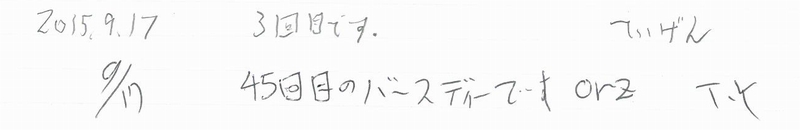 2015.9.17 3回目です. てぃげん
9/17 45回目のバースディーで…す orz T.Y